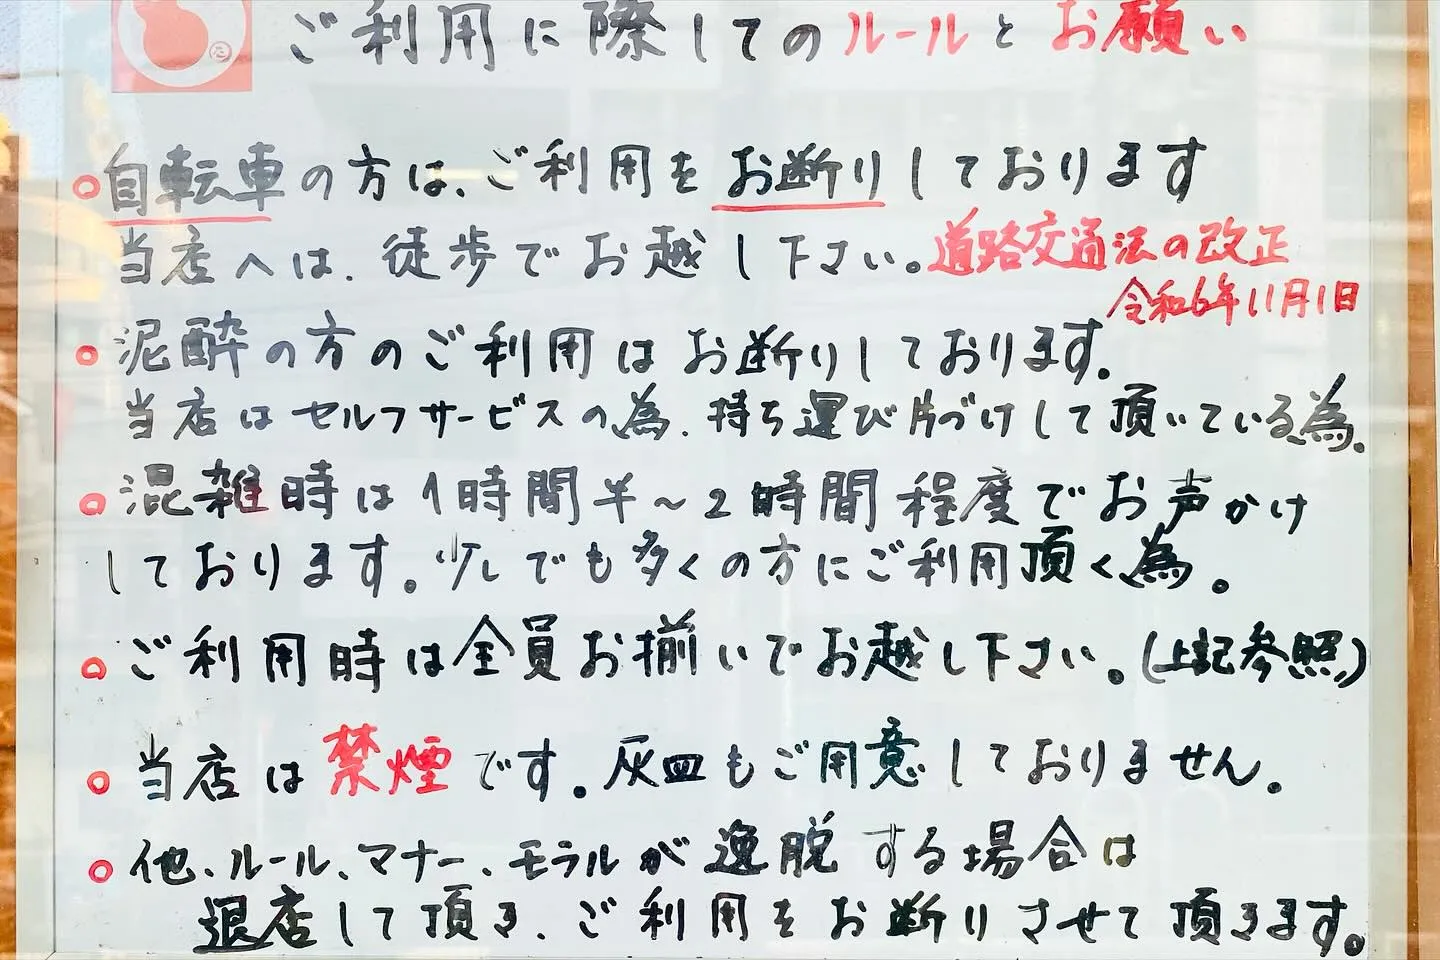 ご利用に際してのルールとお願い
○自転車の方は、ご利用をお断りしております
当店へは、徒歩でお越し下さい。道路交通法の改正
令和6年11月1日
○泥酔の方のご利用はお断りしております。
当店はセルフサービスの為、持ち運び片づけして頂いている為。
○混雑時は1時間半～2時間程度でお声かけ
しております。少しでも多くの方にご利用頂く為。
○ご利用時は全員お揃いでお越し下さい。(上記参照)
○当店は禁煙です。灰皿もご用意しておりません。
○他、ルール、マナー、モラルが逸脱する場合は
退店して頂き、ご利用をお断りさせて頂きます。